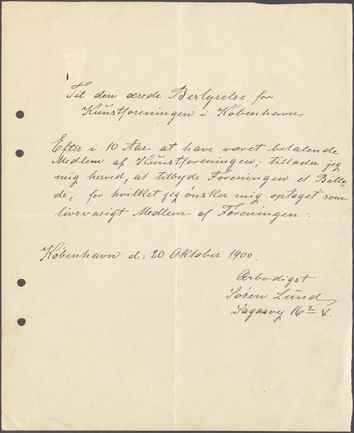 Til den ærede Bestyrelse for
Kunstforeningen i København.
Efter i 10 Aar at have været betalende
Medlem af Kunstforeningen, tillader jeg
mig herved, at tilbyde Foreningen et Bille-
de, for hvilket jeg ønsker mig optaget som
livsvarigt Medlem af Foreningen.
København d: 20 Oktober 1900.
Ærbødigst
Søren Lund,
16 V.